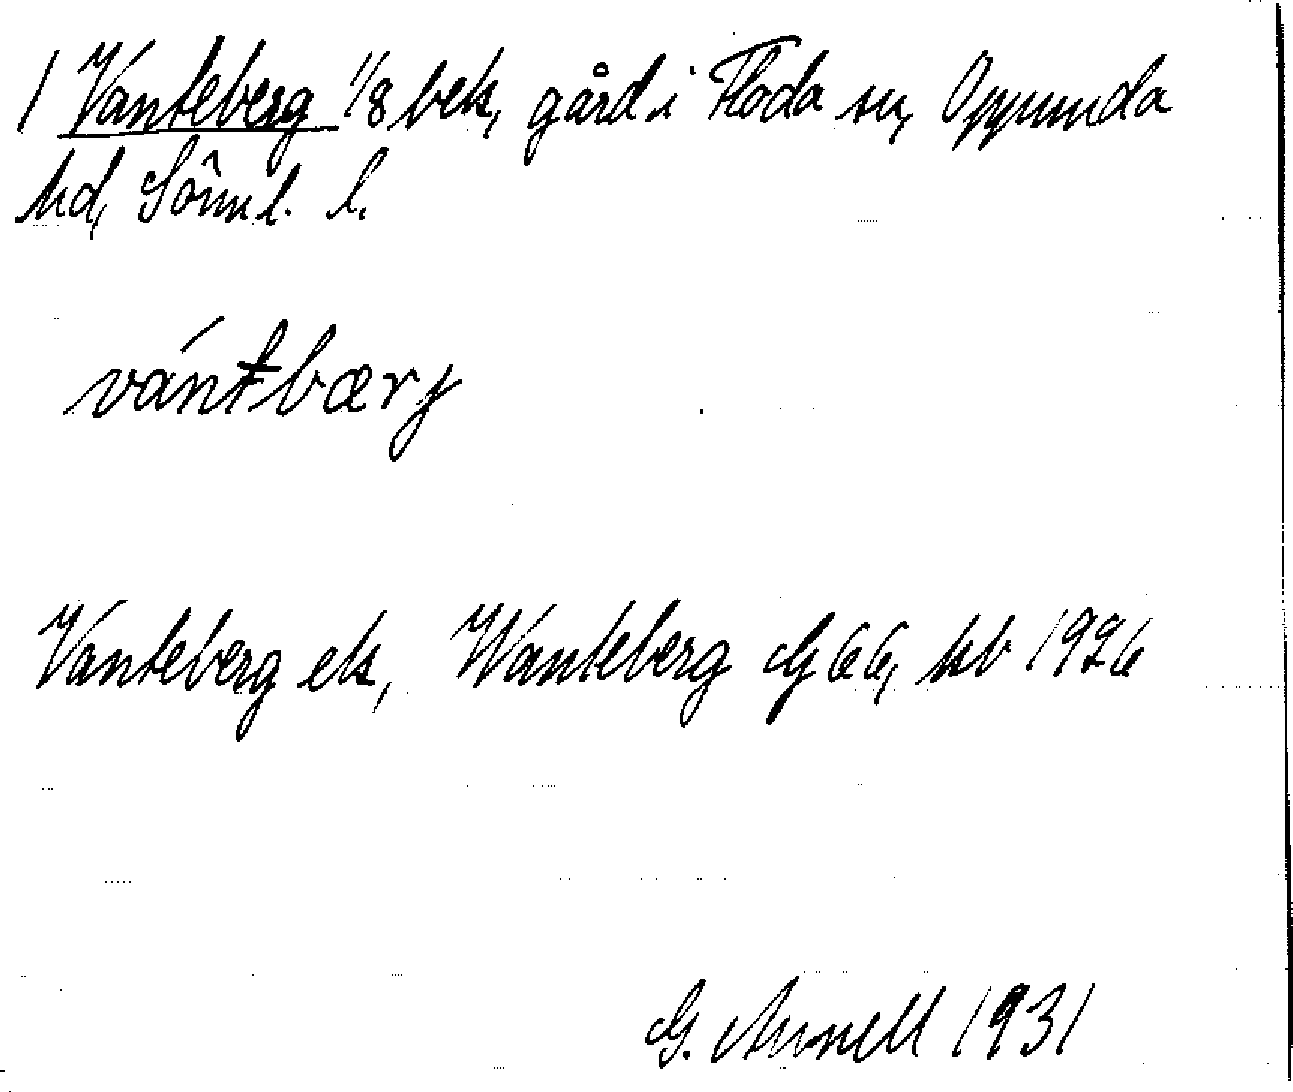 1 Vanteberg 1/8 bek, gård i Floda sn, Oppunda
hd, Sörml. l.
vántbærj
Vanteberg ek, Wanteberg G 66, kb 1926
G. Annell 1931